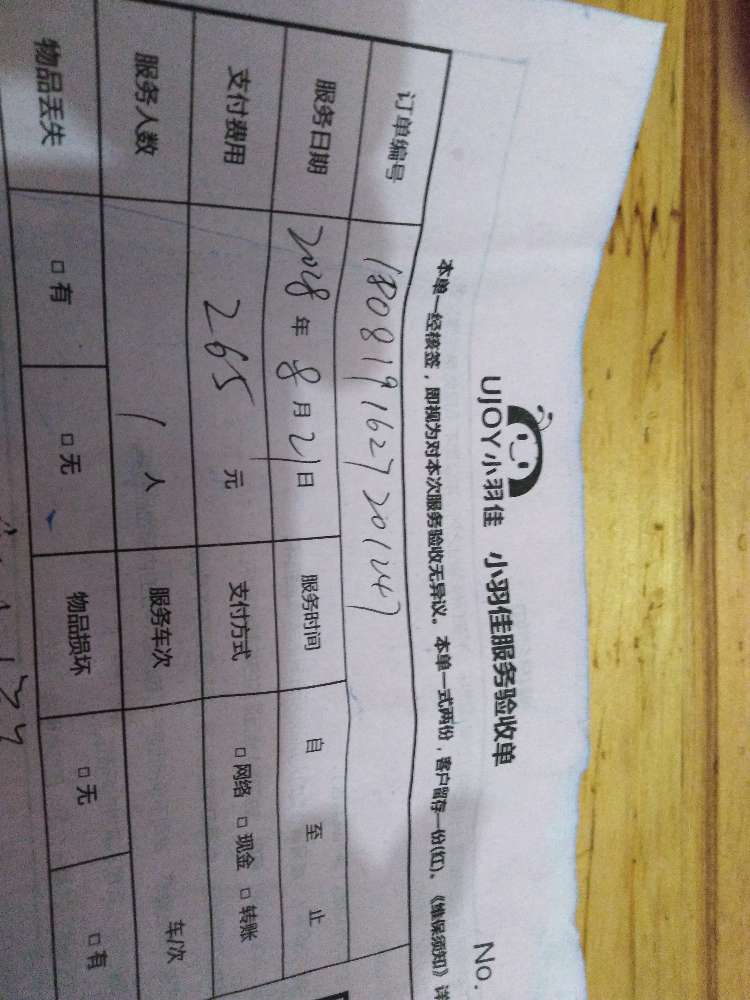 UJOY小羽佳 小羽佳服务验收单 No.
本单一经接签，即视为对本次服务验收无异议。本单一式两份，客户留存一份(红)。《维保须知》详
订单编号 1808191627201247
服务日期 2018年8月21日 服务时间 自 至 止
支付费用 265元 支付方式 □网络 □现金 □转账
服务人数 1人 服务车次 车/次
物品丢失 □有 □无 物品损坏 □无 □有